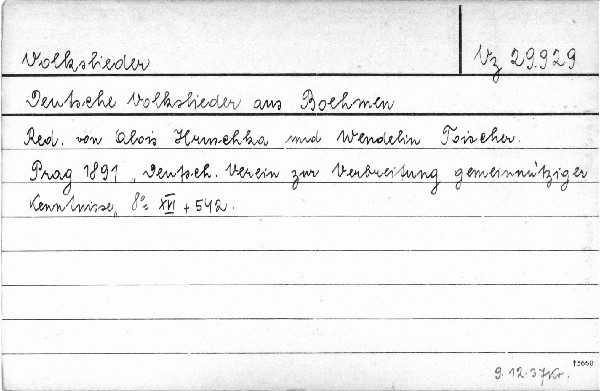 Volkslieder
Vz 29.929
Deutsche Volkslieder aus Boehmen
Red. von Alois Hruschka und Wendelin Toischer.
Prag 1891 „Deutsch. Verein zur Verbreitung gemeinnütziger
Kenntnisse„ 8º= XVI + 542.
15660
9.12.37Kr.